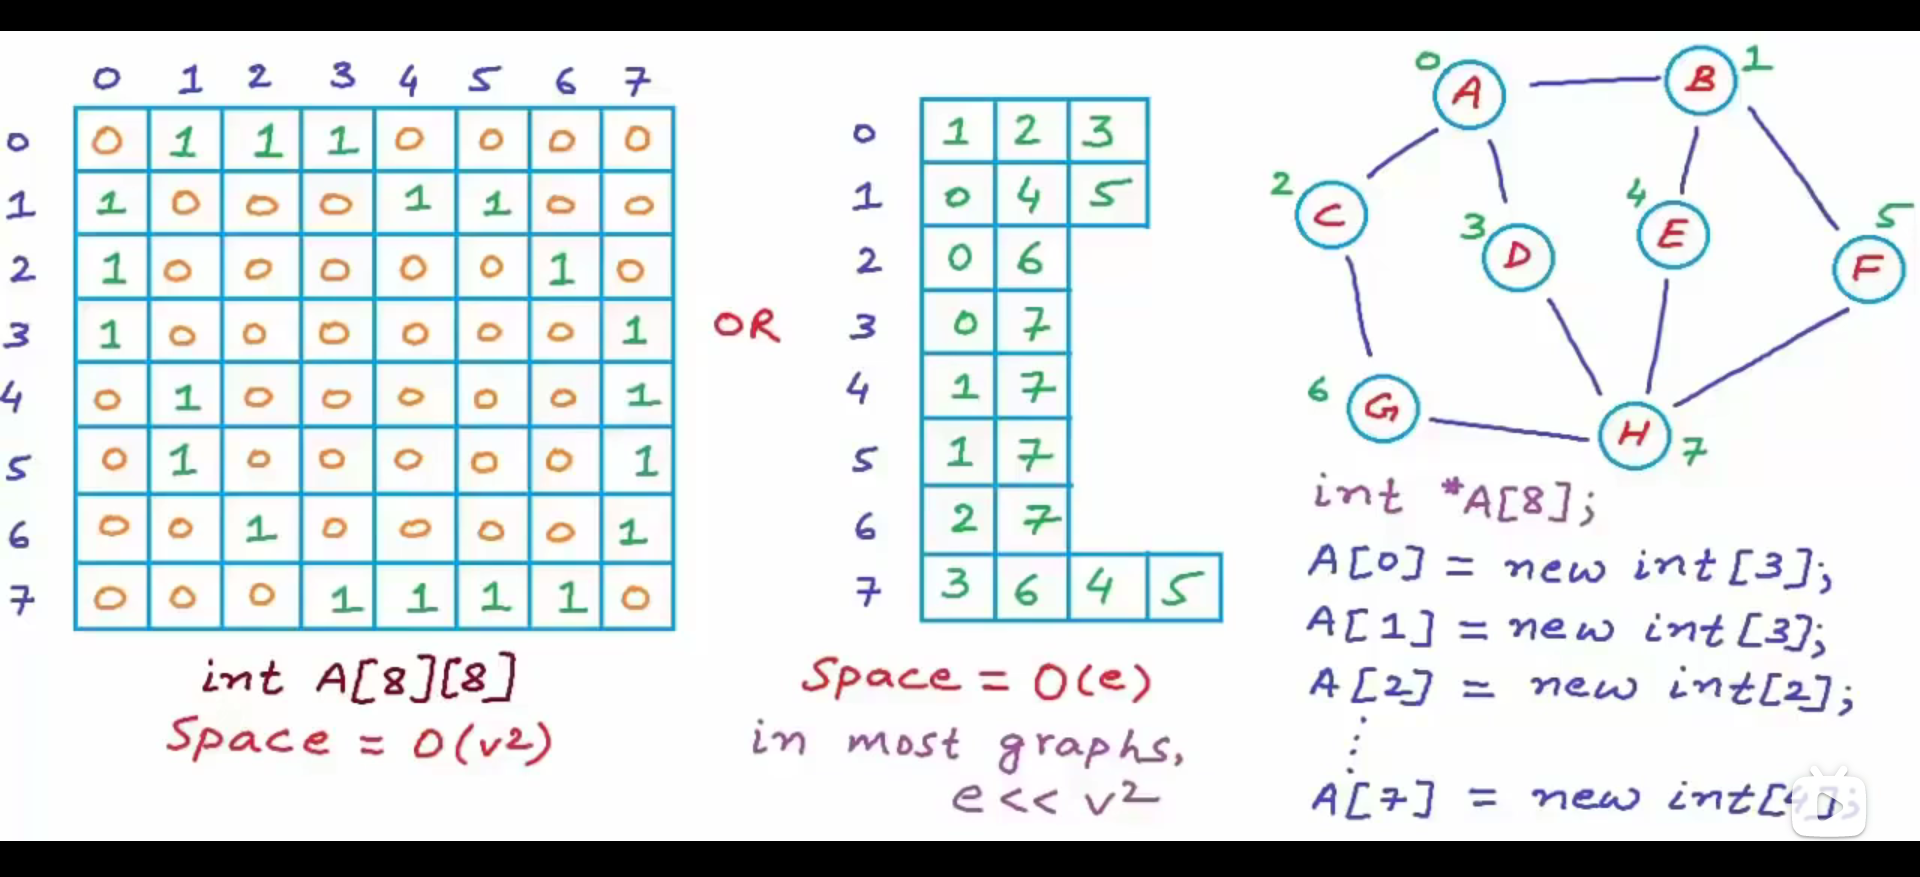 0 1 2 3 4 5 6 7
0 0 1 1 1 0 0 0 0
1 1 0 0 0 1 1 0 0
2 1 0 0 0 0 0 1 0
3 1 0 0 0 0 0 0 1
4 0 1 0 0 0 0 0 1
5 0 1 0 0 0 0 0 1
6 0 0 1 0 0 0 0 1
7 0 0 0 1 1 1 1 0
int A[8][8]
Space = O(v2)
OR
0 1 2 3
1 0 4 5
2 0 6
3 0 7
4 1 7
5 1 7
6 2 7
7 3 6 4 5
Space = O(e)
in most graphs,
e << v2
0 A
B 1
2 C
3 D
4 E
5 F
6 G
H 7
int *A[8];
A[0] = new int[3];
A[1] = new int[3];
A[2] = new int[2];
⋮
A[7] = new int[4];